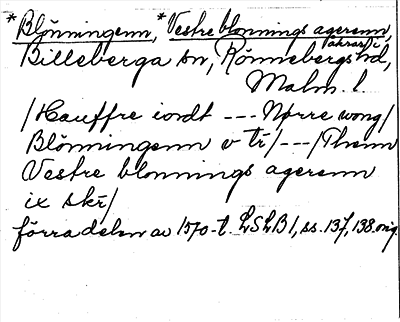 *Blönningenn, *Vestre blonnings agerenn,
åkrar i
Billeberga sn, Rönnebergs hd,
Malm. l.
/Hauffre iordt --- Nørre wong/
Blönningenn v tr/---/Thenn
Vestre blonnings agerenn
ix skr/
förra delen av 1570-t. LSLB1, ss. 137, 138. orig.